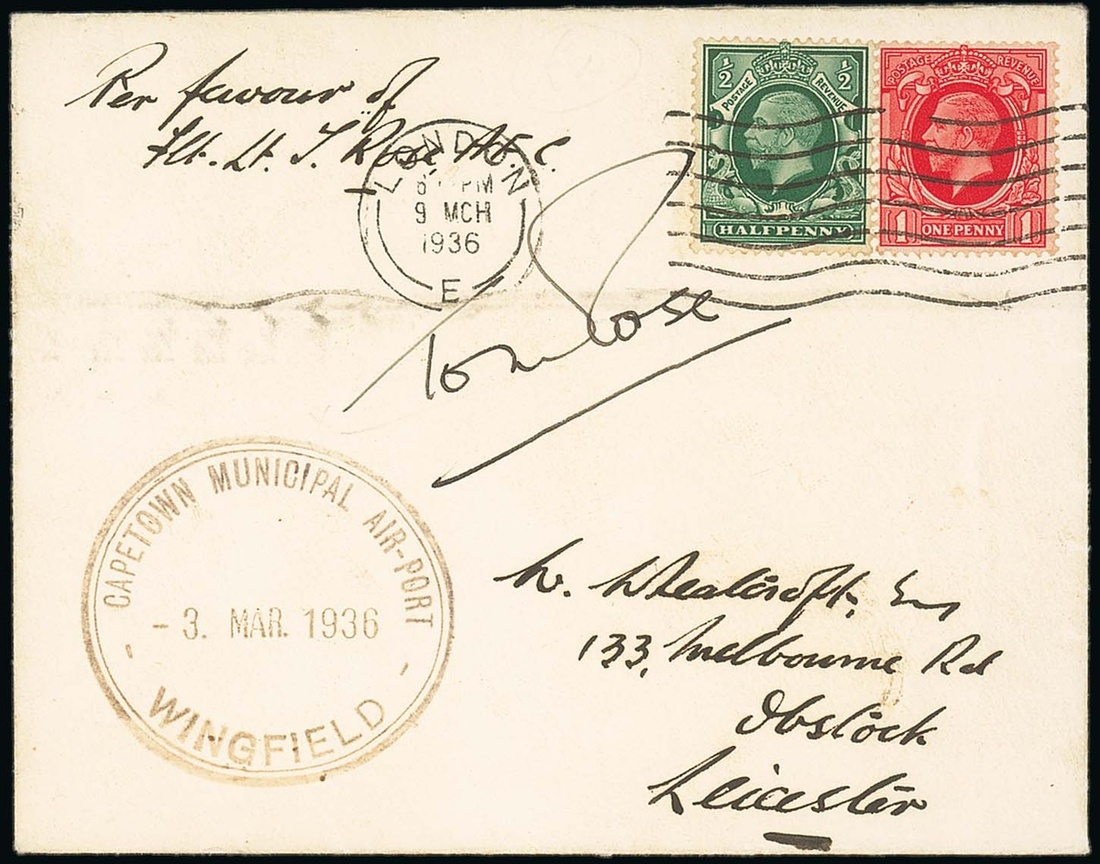 Per favour of
Flt. Lt. T. Rose A.F.C.
½ ½
POSTAGE REVENUE
HALFPENNY
POSTAGE REVENUE
1 ONE PENNY 1
LONDON
PM
9 MCH
1936
E
Tom Rose
CAPETOWN MUNICIPAL AIR-PORT
- 3. MAR. 1936
- WINGFIELD -
W. Wheatcroft, Esq
133, Melbourne Rd
Ibstock
Leicester